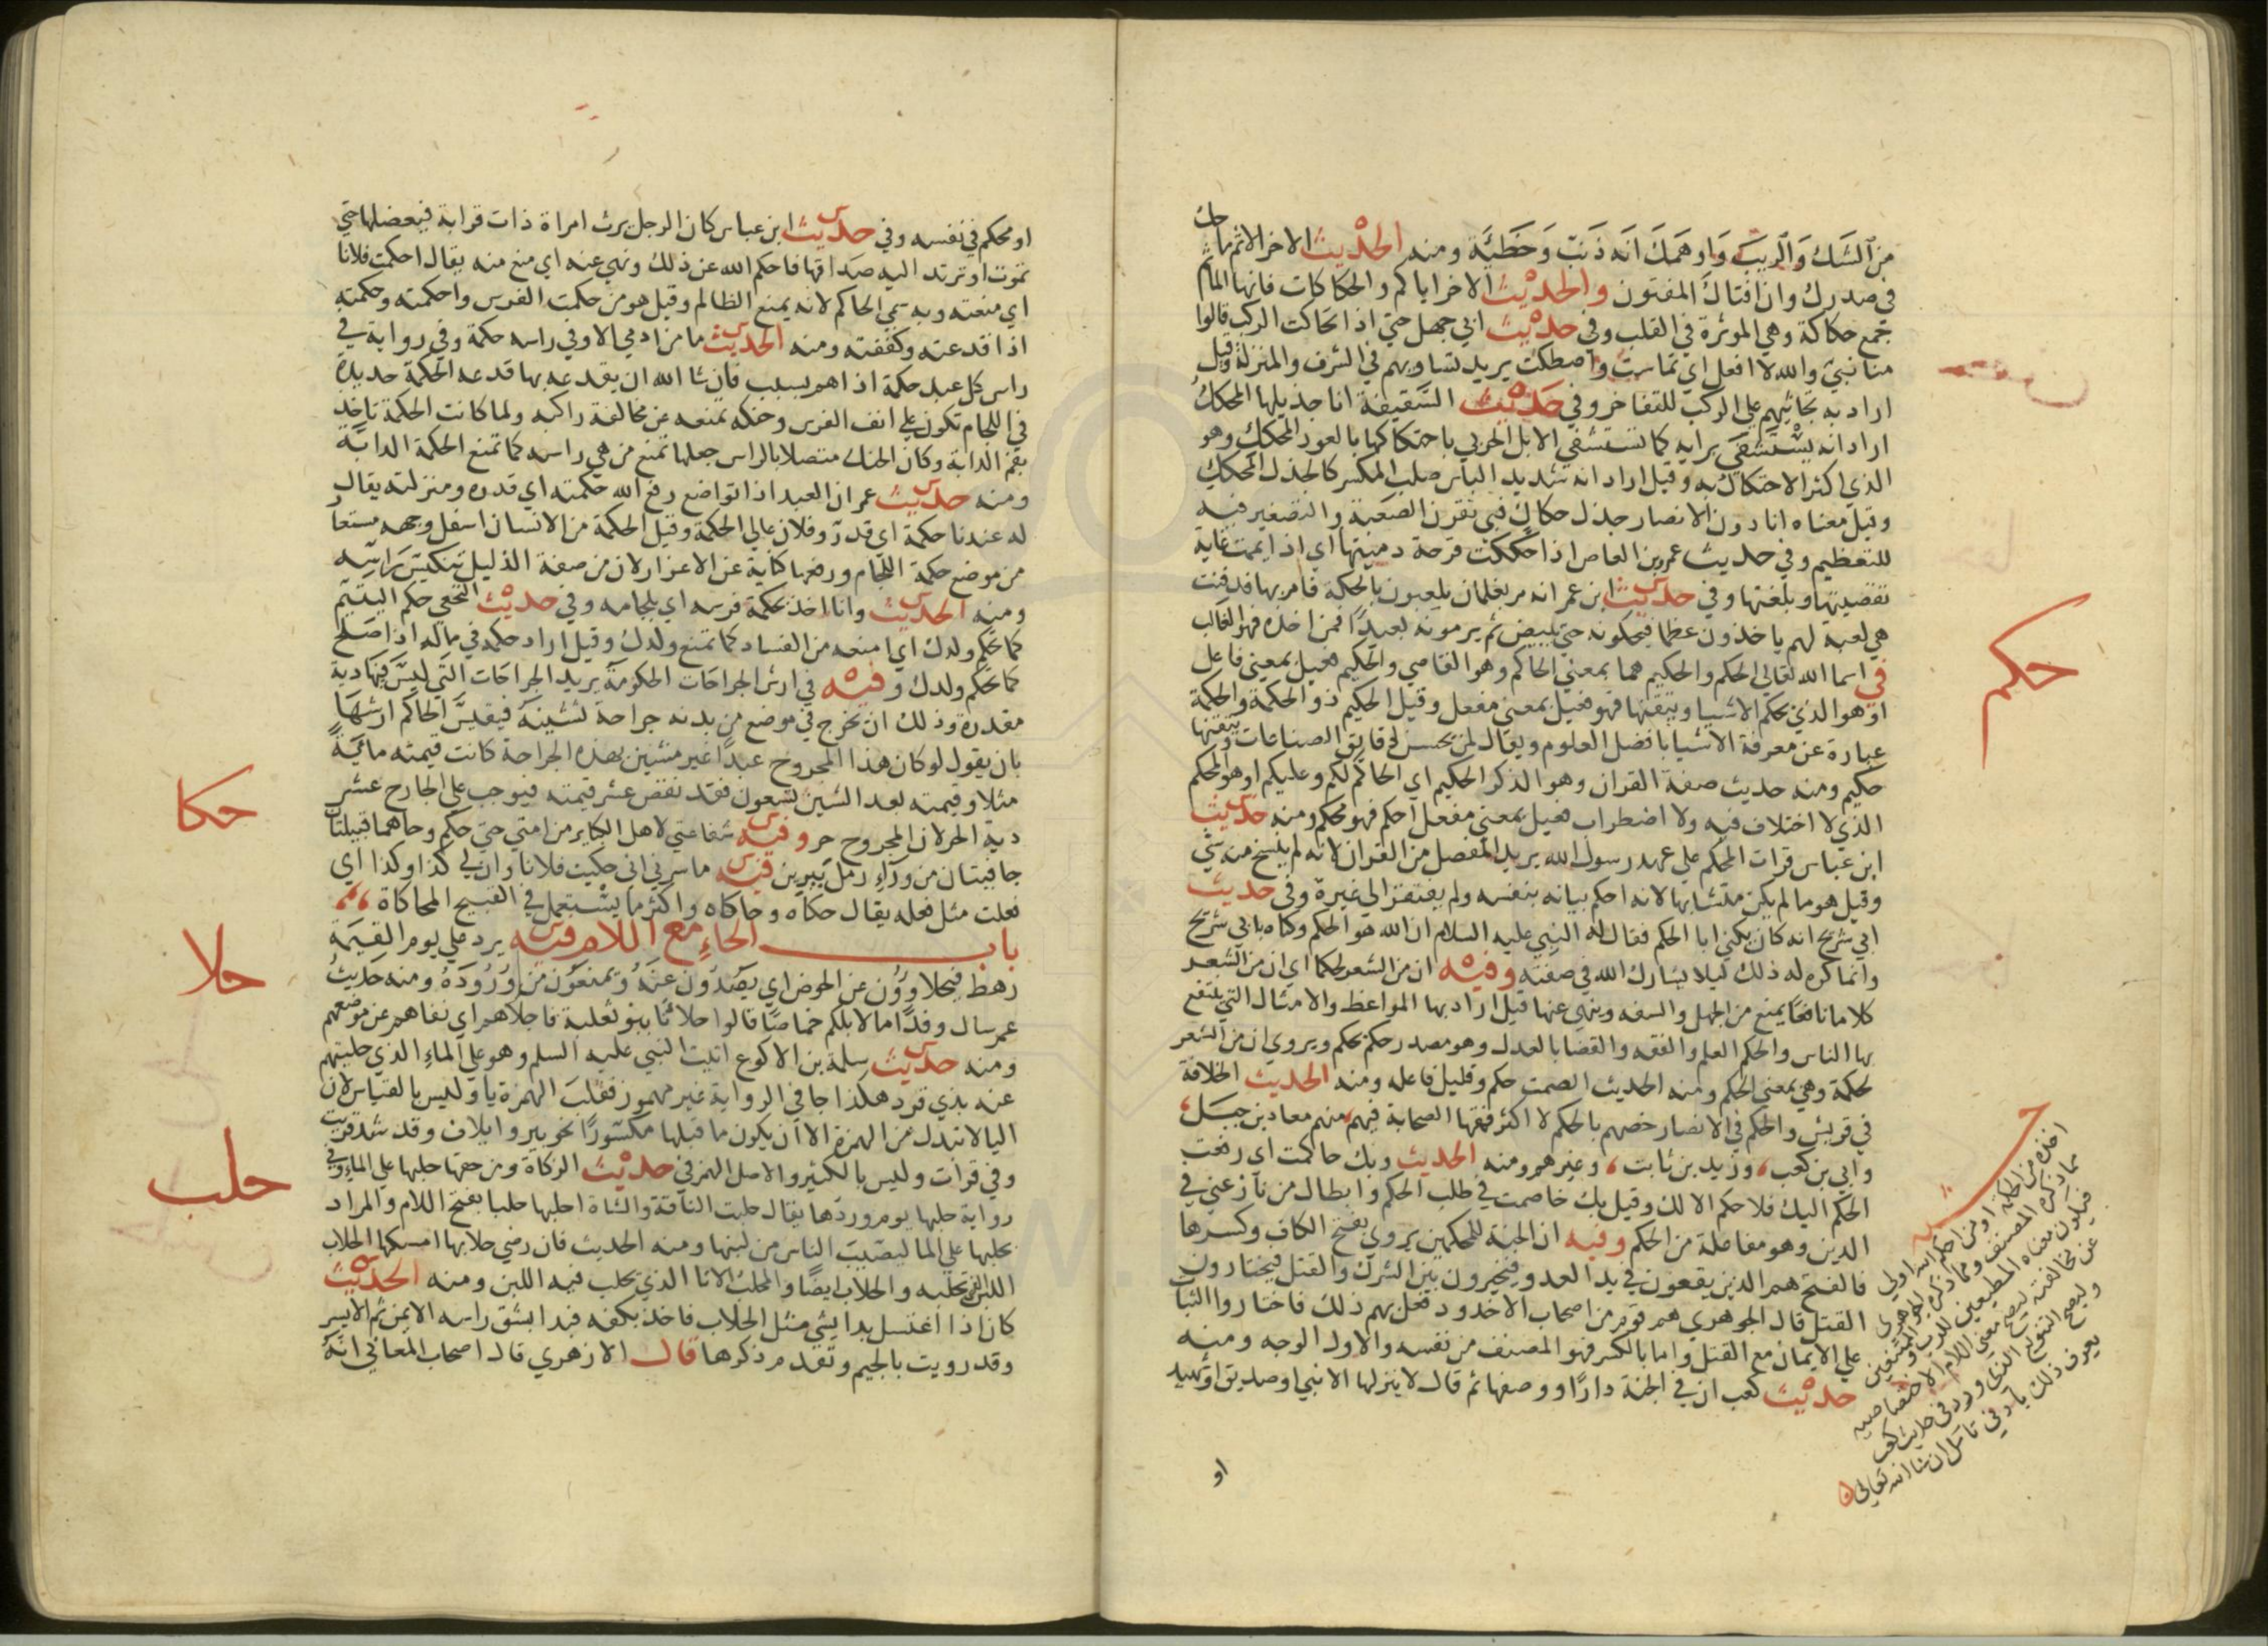 من الشك والريب واوهمك انه ذنب وخطية ومنه الحديث الاخر الاثم ما حك
في صدرك وان افتاك المفتون والحديث الاخر اياكم والحكاكات فانها المآثم
جمع حكاكة وهي الموثرة في القلب وفي حديث ابي جهل حتي اذا تحاكت الركب قالوا
منا نبي والله لا افعل اي تماست واصطكت يريد تساويهم في الشرف والمنزلة وقيل
اراد به تجاثيهم علي الركب للتفاخر وفي حديث السقيفة انا جذيلها المحكك
اراد انه يستشفي برايه كما تستشفي الابل الجربي باحتكاكها بالعود المحكك وهو
الذي اكثر الاحتكاك به وقيل اراد انه شديد الباس صلب المكسر كالجذل المحكك
وقيل معناه انا دون الانصار جذل حكاك فبي تقرن الصعبة والتصغير فيه
للتعظيم وفي حديث عمرو بن العاص اذا حككت قرحة دميتها اي اذا اممت غاية
تقصيتها وبلغتها وفي حديث ابن عمر انه مر بغلمان يلعبون بالحكة فامر بها فدفنت
هي لعبة لهم ياخذون عظما فيحكونه حتي يبيض ثم يرمونه بعيدا فمن اخذه فهو الغالب
في اسما الله تعالي الحكم والحكيم هما بمعني الحاكم وهو القاضي والحكيم فعيل بمعني فاعل
او هو الذي يحكم الاشيا ويتقنها فهو فعيل بمعني مفعل وقيل الحكيم ذو الحكمة والحكمة
عبارة عن معرفة الاشيا بافضل العلوم ويقال لمن يحسن دقايق الصناعات ويتقنها
حكيم ومنه حديث صفة القران وهو الذكر الحكيم اي الحاكم لكم وعليكم او هو المحكم
الذي لا اختلاف فيه ولا اضطراب فعيل بمعني مفعل احكم فهو محكم ومنه حديث
ابن عباس قرات المحكم علي عهد رسول الله يريد المفصل من القران لانه لم ينسخ منه شي
وقيل هو ما لم يكن متشابها لانه احكم بيانه بنفسه ولم يفتقر الي غيره وفي حديث
ابي شريح انه كان يكني ابا الحكم فقال له النبي عليه السلام ان الله هو الحكم وكناه بابي شريح
وانما كره له ذلك ليلا يشارك الله في صفته وفيه ان من الشعر لحكما اي ان من الشعر
كلاما نافعا يمنع من الجهل والسفه وينهي عنها قيل اراد بها المواعظ والامثال التي ينتفع
بها الناس والحكم العلم والفقه والقضا بالعدل وهو مصدر حكم يحكم ويروي ان من الشعر
لحكمة وهي بمعني الحكم ومنه الحديث الصمت حكم وقليل فاعله ومنه الحديث الخلافة
في قريش والحكم في الانصار خصهم بالحكم لان اكثر فقها الصحابة فيهم منهم معاذ بن جبل
وابي بن كعب، وزيد بن ثابت، وغيرهم ومنه الحديث وبك حاكمت اي رفعت
الحكم اليك فلا حكم الا لك وقيل بك خاصمت في طلب الحكم وابطال من نازعني في
الدين وهو مفاعلة من الحكم وفيه ان الجنة للمحكمين يروي بفتح الكاف وكسرها
فالفتح هم الذين يقعون في يد العدو فيخيرون بين الشرك والقتل فيختارون
القتل قال الجوهري هم قوم من اصحاب الاخدود فعل بهم ذلك فاختاروا الثبات
علي الايمان مع القتل واما بالكسر فهو المنصف من نفسه والاول الوجه ومنه
حديث كعب ان في الجنة دارا ووصفها ثم قال لا ينزلها الا نبي او صديق او شهيد
او
حكم
اخذه من الحكمة او من احكم الله اولي
مما ذكره المصنف ومما ذكره الجوهري
فيكون معناه المطيعين للرب والممتنعين
عن مخالفته ليصح معني اللام الاختصاصيه
ويصح التنويع الذي ورد في حديث كعب
يعرف ذلك بادني تامل ان شا الله تعالي
او محكم في نفسه وفي حديث ابن عباس كان الرجل يرث امراة ذات قرابة فيعضلها حتي
تموت او ترد اليه صداقها فاحكم الله عن ذلك ونهي عنه اي منع منه يقال احكمت فلانا
اي منعته وبه سمي الحاكم لانه يمنع الظالم وقيل هو من حكمت الفرس واحكمته وحكمته
اذا قدعته وكففته ومنه الحديث ما من ادمي الا وفي راسه حكمة وفي رواية في
راس كل عبد حكمة اذا هم بسيئة فان شا الله ان يقدعه بها قدعه الحكمة حديدة
في اللجام تكون علي انف الفرس وحنكه تمنعه عن مخالفة راكبه ولما كانت الحكمة تاخذ
بفم الدابة وكان الحنك متصلا بالراس جعلها تمنع من هي راسه كما تمنع الحكمة الدابة
ومنه حديث عمر ان العبد اذا تواضع رفع الله حكمته اي قدره ومنزلته يقال
له عندنا حكمة اي قدر وفلان عالي الحكمة وقيل الحكمة من الانسان اسفل وجهه مستعار
من موضع حكمة اللجام ورفعها كناية عن الاعزاز لان من صفة الذليل تنكيس راسه
ومنه الحديث وانا اخذ بحكمة فرسه اي بلجامه وفي حديث النخعي حكم اليتيم
كما تحكم ولدك اي امنعه من الفساد كما تمنع ولدك وقيل اراد حكمه في ماله اذا صلح
كما تحكم ولدك وفيه في ارش الجراحات الحكومة يريد الجراحات التي ليس فيها دية
مقدرة وذلك ان يخرج في موضع من بدنه جراحة تشينه فيقيس الحاكم ارشها
بان يقول لو كان هذا المجروح عبدا غير مشين بهذه الجراحة كانت قيمته مائة
مثلا وقيمته بعد الشين تسعون فقد نقص عشر قيمته فيوجب علي الجارح عشر
دية الحر لان المجروح حر وفيه شفاعتي لاهل الكباير من امتي حتي حكم وحا هما قبيلتان
جافيتان من ورآء رمل يبرين فيه ما سرني اني حكيت فلانا وان لي كذا وكذا اي
فعلت مثل فعله يقال حكاه وحاكاه واكثر ما يستعمل في القبيح المحاكاة
باب الحاء مع اللام فيه يرد علي يوم القيمة
رهط فيحلاوون عن الحوض اي يصدون عنه ويمنعون من وروده ومنه حديث
عمر سال وفدا ما لابلكم خماصا قالوا حلانا بنو ثعلبة فاجلاهم اي نفاهم عن موضعهم
ومنه حديث سلمة بن الاكوع اتيت النبي عليه السلم وهو علي الماء الذي حليتهم
عنه بذي قرد هكذا جا في الرواية غير مهموز فقلب الهمزة يا وليس بالقياس لان
اليا لا تبدل من الهمزة الا ان يكون ما قبلها مكسورا نحو بير وايلاف وقد شذ قريت
وفي قرات وليس بالكثير والاصل الهمز في حديث الزكاة ومن حقها حلبها علي الماء وفي
رواية حلبها يوم وردها يقال حلبت الناقة والشاة احلبها حلبا بفتح اللام والمراد
يحلبها علي الما ليصيب الناس من لبنها ومنه الحديث فان رضي حلابها امسكها الحلاب
اللبن الذي تحلبه والحلاب ايضا والمحلب الانا الذي يحلب فيه اللبن ومنه الحديث
كان اذا اغتسل بدا بشي مثل الحلاب فاخذ بكفه فبدا بشق راسه الايمن ثم الايسر
وقد رويت بالجيم وتقدم ذكرها قال الازهري قال اصحاب المعاني انه
حكا
حلا
حلب